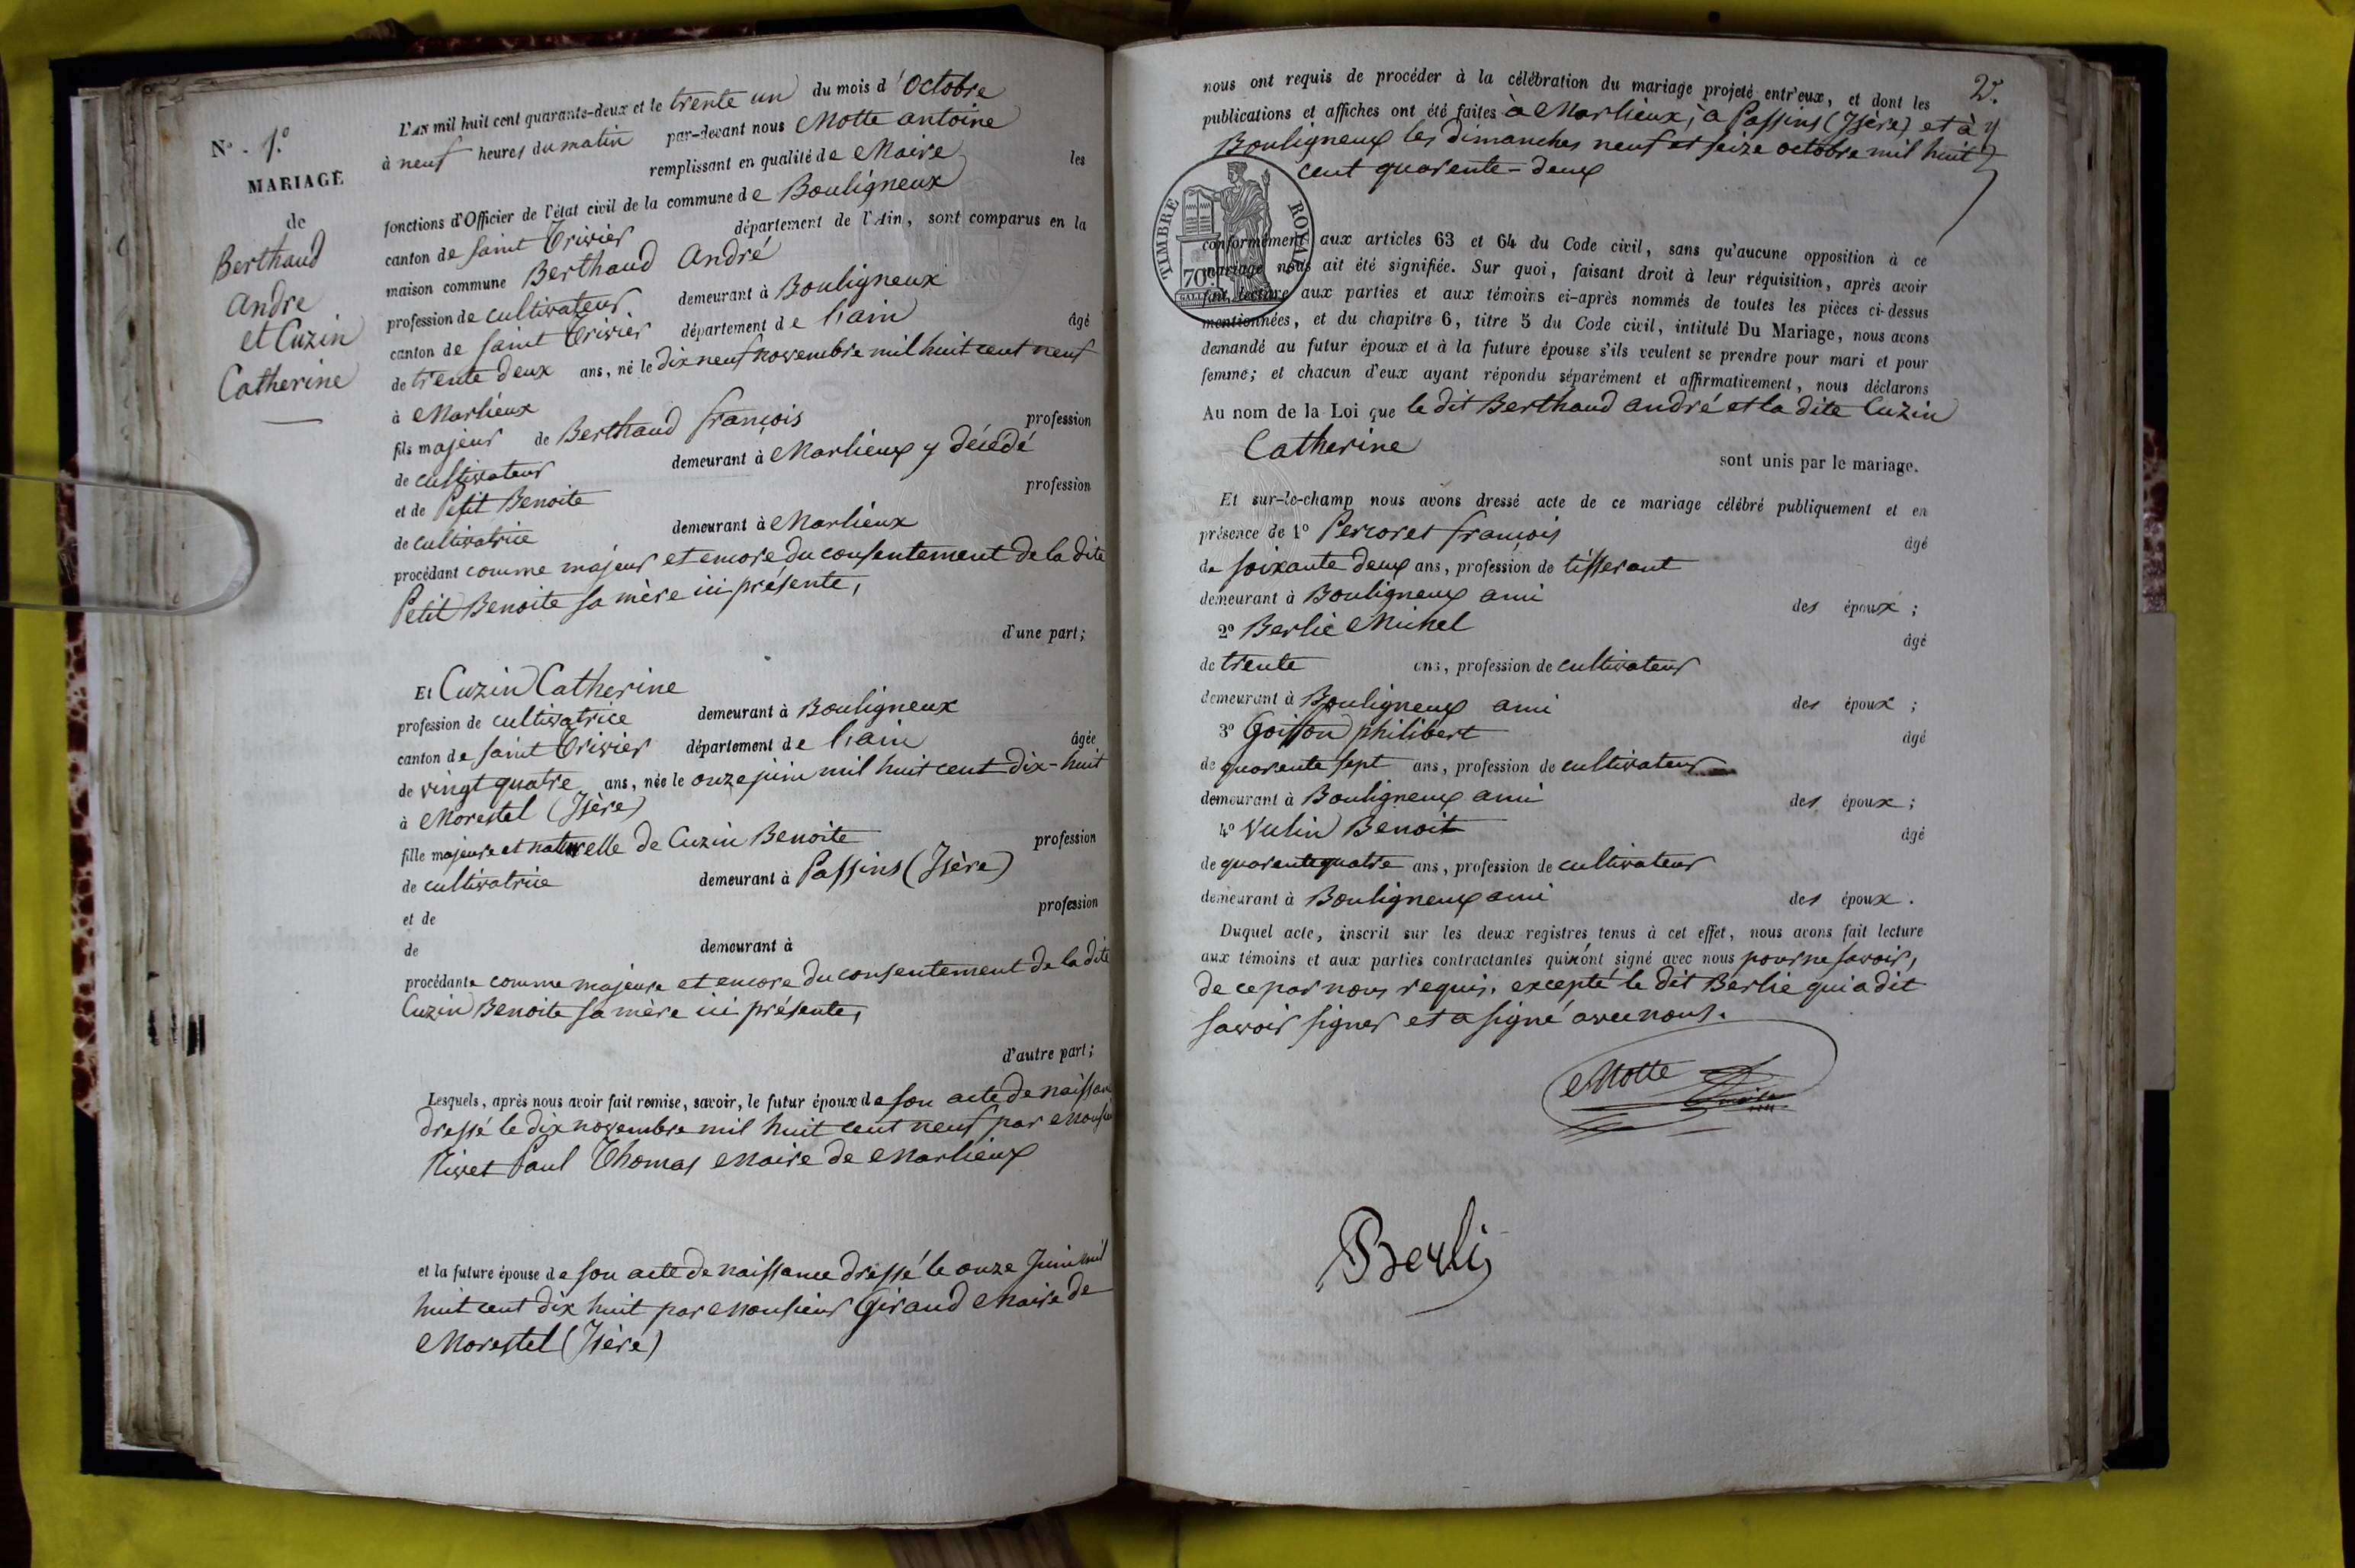 N° . 1.°
MARIAGE
de
Berthaud
andre
et Cuzin
Catherine
L'AN mil huit cent quarante-deux et le trente un du mois d'Octobre
à neuf heures du matin par-devant nous Motte antoine
remplissant en qualité de Maire les
fonctions d'Officier de l'état civil de la commune de Bouligneux
canton de saint Trivier département de l'Ain, sont comparus en la
maison commune Berthaud André
profession de cultivateur demeurant à Bouligneux
canton de saint Trivier département de l'ain âgé
de trente deux ans, né le dix neuf novembre mil huit cent neuf
à Marlieux
fils majeur de Berthaud françois profession
de cultivateur demeurant à Marlieux y décédé
et de Petit Benoite profession
de cultivatrice demeurant à Marlieux
procédant comme majeur et encore du consentement de la dite
Petit Benoite sa mère ici présente,
d'une part;
Et Cuzin Catherine
profession de cultivatrice demeurant à Bouligneux
canton de saint Trivier département de l'ain âgée
de vingt quatre ans, née le onze juin mil huit cent dix-huit
à Morestel (Isère)
fille majeure et naturelle de Cuzin Benoite profession
de cultivatrice demeurant à Passins (Isère)
et de profession
de demeurant à
procédante comme majeure et encore du consentement de la dite
Cuzin Benoite sa mère ici présente,
d'autre part;
Lesquels, après nous avoir fait remise, savoir, le futur époux de son acte de naissance
dressé le dix novembre mil huit cent neuf par
Paul Thomas Maire de Marlieux
et la future épouse de son acte de naissance dressé le onze Juin mil
huit cent dix huit par Monsieur Giraud Maire de
Morestel (Isère)
2.
nous ont requis de procéder à la célébration du mariage projeté entr'eux, et dont les
publications et affiches ont été faites à Marlieux, à Passins (Isère) et à
Bouligneux les dimanches neuf et seize octobre mil huit
cent quarente-deux
TIMBRE ROYAL
70c.
conformément aux articles 63 et 64 du Code civil, sans qu'aucune opposition à ce
mariage nous ait été signifiée. Sur quoi, faisant droit à leur réquisition, après avoir
fait lecture aux parties et aux témoins ci-après nommés de toutes les pièces ci-dessus
mentionnées, et du chapitre 6, titre 5 du Code civil, intitulé Du Mariage, nous avons
demandé au futur époux et à la future épouse s'ils veulent se prendre pour mari et pour
femme; et chacun d'eux ayant répondu séparément et affirmativement, nous déclarons
Au nom de la Loi que le dit Berthaud andré et la dite Cuzin
Catherine
sont unis par le mariage.
Et sur-le-champ nous avons dressé acte de ce mariage célébré publiquement et en
présence de 1° Percoret françois âgé
de soixante deux ans, profession de tisserant
demeurant à Bouligneux ami des époux ;
2° Berlie Michel âgé
de trente ans, profession de cultivateur
demeurant à Bouligneux ami des époux ;
3° Goiffon philibert âgé
de quarente sept ans, profession de cultivateur
demeurant à Bouligneux ami des époux ;
4° Vulin Benoit âgé
de quarente quatre ans, profession de cultivateur
demeurant à Bouligneux ami des époux .
Duquel acte, inscrit sur les deux registres tenus à cet effet, nous avons fait lecture
aux témoins et aux parties contractantes qui n'ont signé avec nous pour ne savoir,
de ce par nous requis, excepté le dit Berlie qui a dit
savoir signer et a signé avec nous.
Motte
Berli